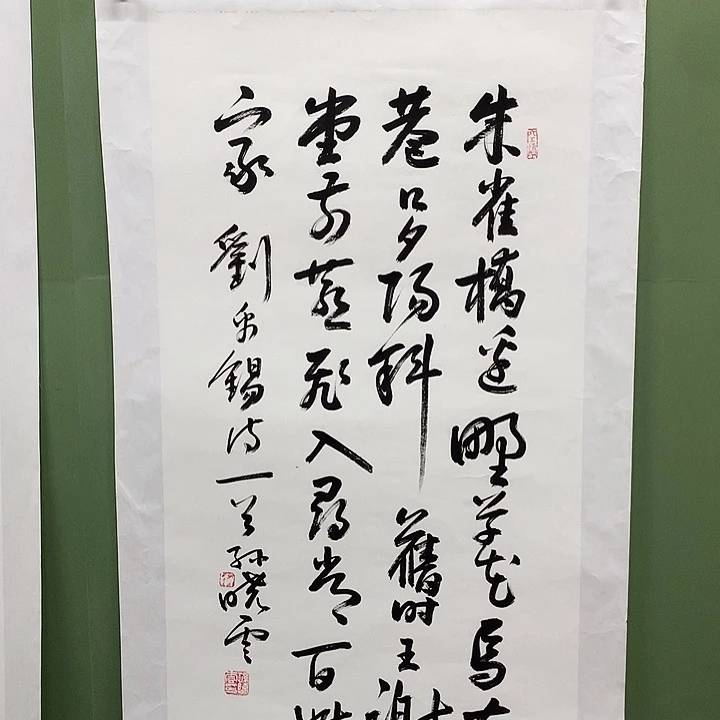 朱雀橋邊野草花烏
巷口夕陽斜舊時王謝
堂前燕飛入尋常百
家 劉禹錫詩一首孫曉雲